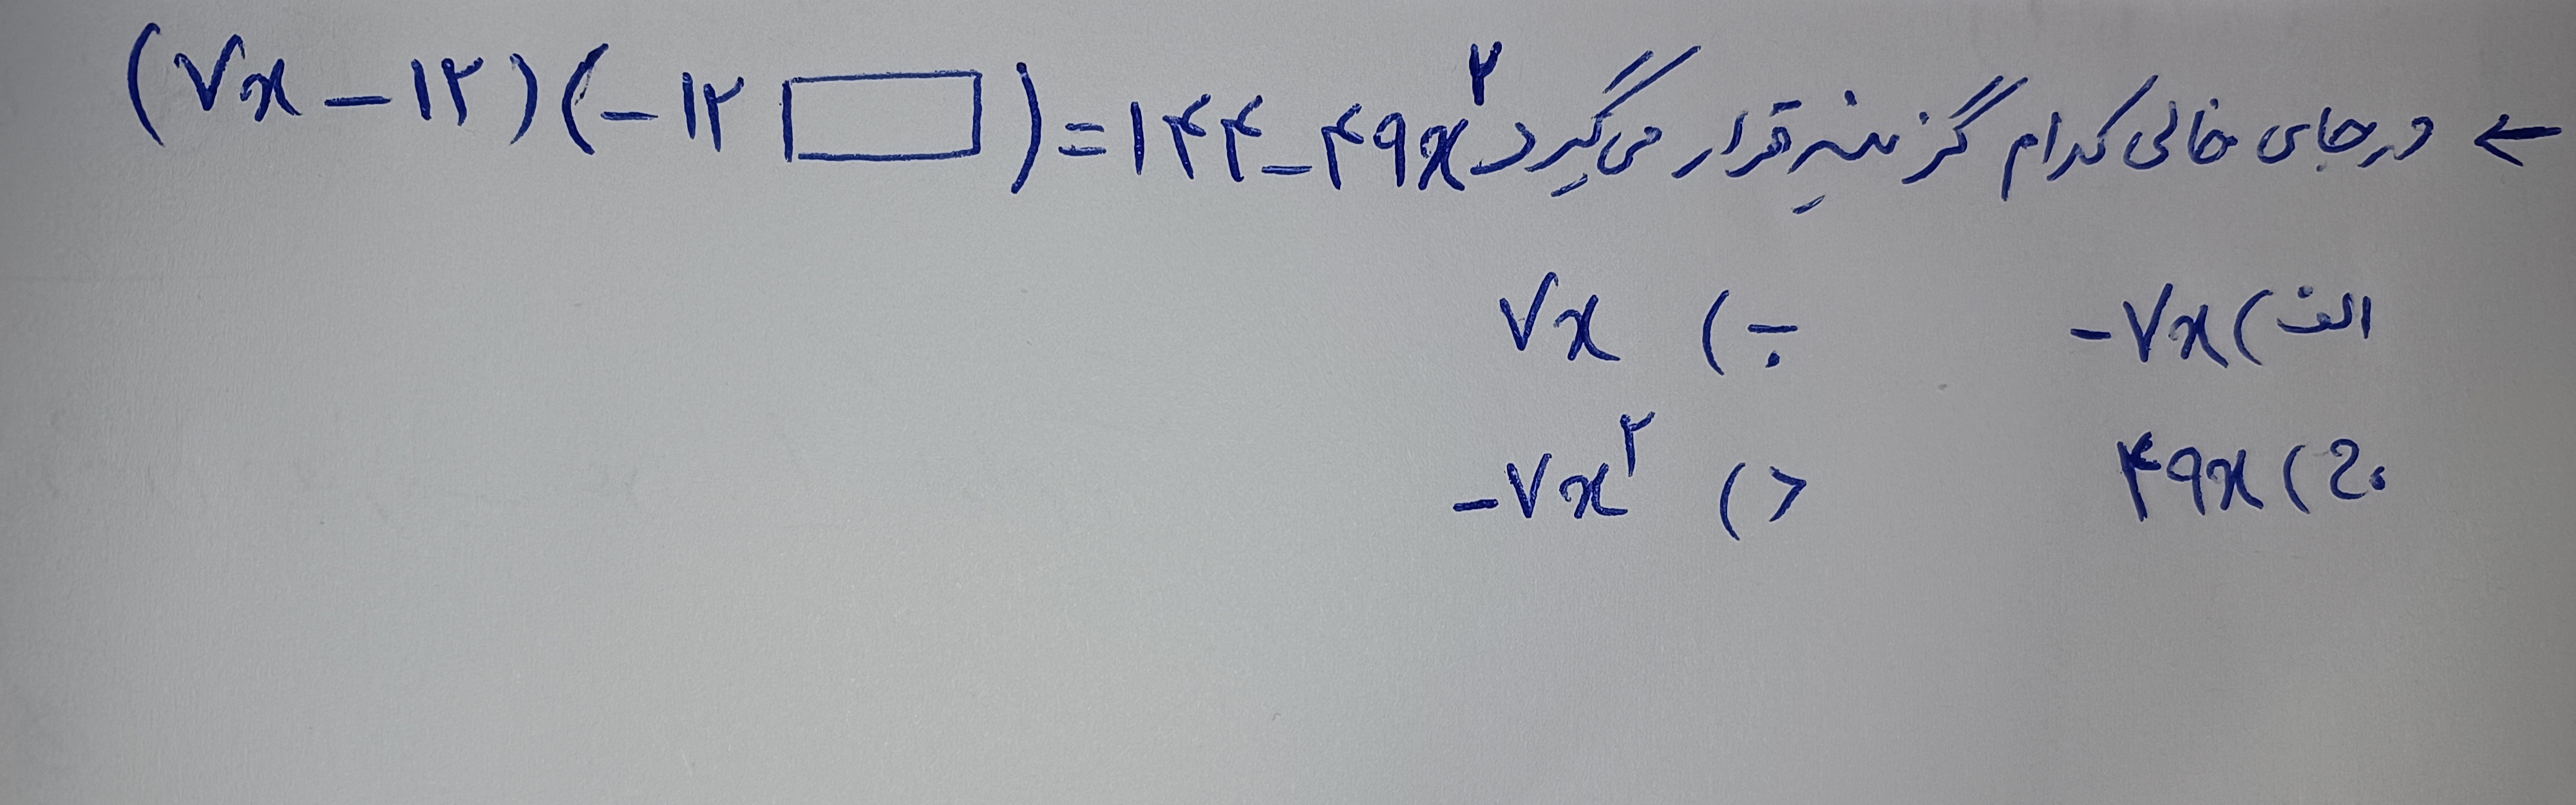 ← در جای خالی کدام گزینه قرار می‌گیرد (۷x − ۱۲)(−۱۲ □) = ۱۴۴ − ۴۹x^۲
الف) −۷x ب) ۷x
ج) ۴۹x د) −۷x^۲